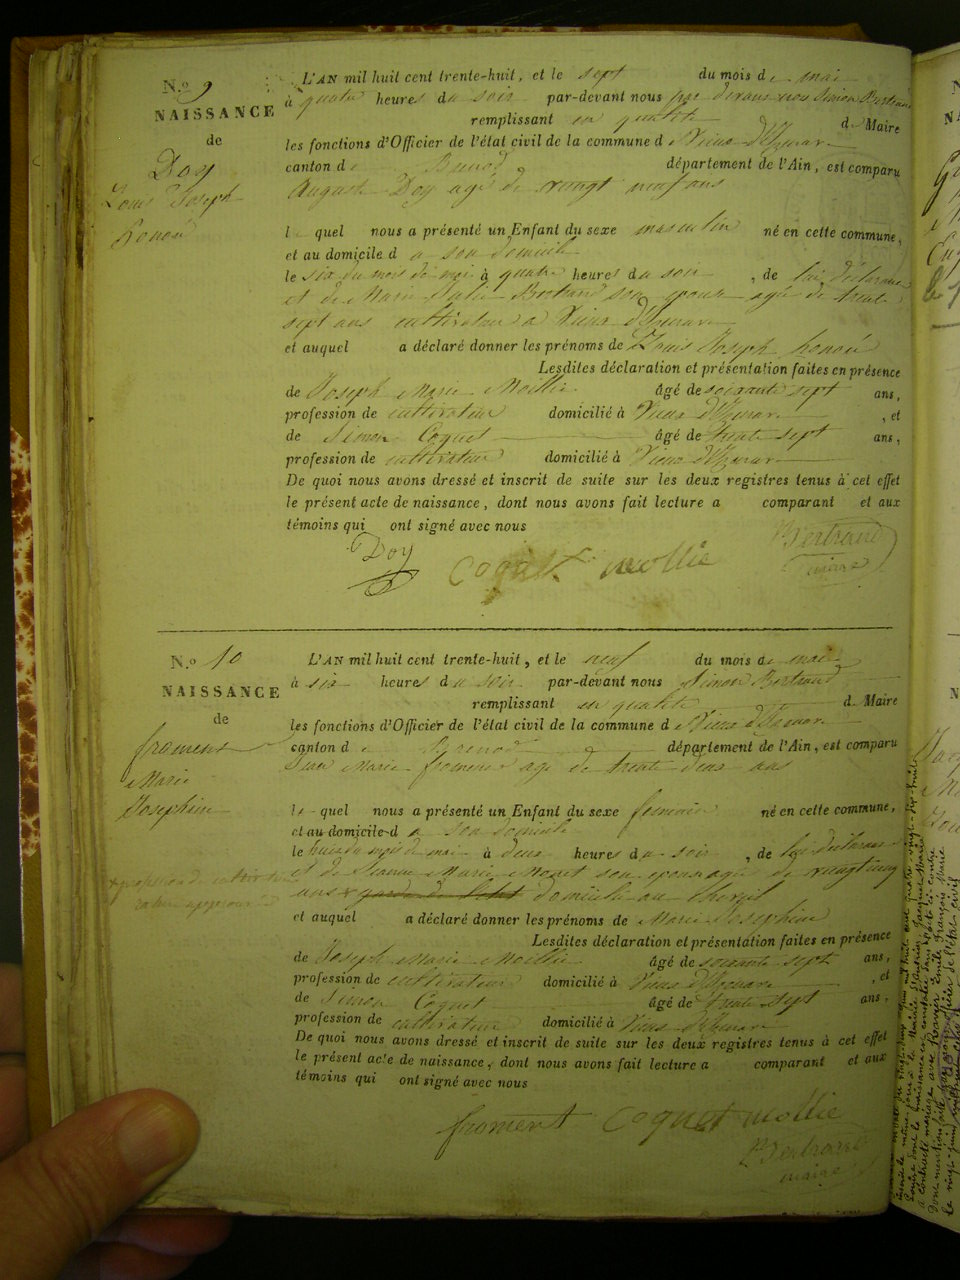 N.o 9
NAISSANCE
de
Doy
Louis Joseph
honoré
L'AN mil huit cent trente-huit, et le sept du mois de mai
à quatre heures du soir par-devant nous par devans nous Simon Bertrand
remplissant en qualité de Maire
les fonctions d'Officier de l'état civil de la commune de Vieux d'Izenave
canton de Brenod département de l'Ain, est comparu
August Doy agé de vingt neuf ans
lequel nous a présenté un Enfant du sexe masculin né en cette commune,
et au domicile d a son domicile
le six du mois de mai à quatre heures du soir, de lui déclarant
et de Marie Julie Bertrand son epouse agé de trente
sept ans cultivateur a Vieux d'Izenave
et auquel a déclaré donner les prénoms de Louis Joseph honoré
Lesdites déclaration et présentation faites en présence
de Joseph Marie Mollie âgé de soixante sept ans,
profession de cultivateur domicilié à Vieux d'Izenave, et
de Simon Coquet âgé de trente sept ans,
profession de cultivateur domicilié à Vieux d'Izenave
De quoi nous avons dressé et inscrit de suite sur les deux registres tenus à cet effet
le présent acte de naissance, dont nous avons fait lecture a comparant et aux
témoins qui ont signé avec nous
Doy Coquet mollie Bertrand
maire
N.o 10
NAISSANCE
de
froment
Marie
Josephine
L'AN mil huit cent trente-huit, et le neuf du mois de mai
à six heures du soir par-devant nous Simon Bertrand
remplissant en qualité de Maire
les fonctions d'Officier de l'état civil de la commune de Vieux d'Izenave
canton de Brenod département de l'Ain, est comparu
Marie froment agé de trente deux ans
lequel nous a présenté un Enfant du sexe feminin né en cette commune,
et au domicile d a son domicile
le huit du mois de mai à deux heures du soir, de lui déclarant
et de Jeanne Marie son epouse agé de vingt cinq
ans domicilié au
et auquel a déclaré donner les prénoms de Marie Josephine
Lesdites déclaration et présentation faites en présence
de Joseph Marie Mollie âgé de soixante sept ans,
profession de cultivateur domicilié à Vieux d'Izenave, et
de Simon Coquet âgé de trente sept ans,
profession de cultivateur domicilié à Vieux d'Izenave
De quoi nous avons dressé et inscrit de suite sur les deux registres tenus à cet effet
le présent acte de naissance, dont nous avons fait lecture a comparant et aux
témoins qui ont signé avec nous
froment Coquet mollie
Bertrand
maire